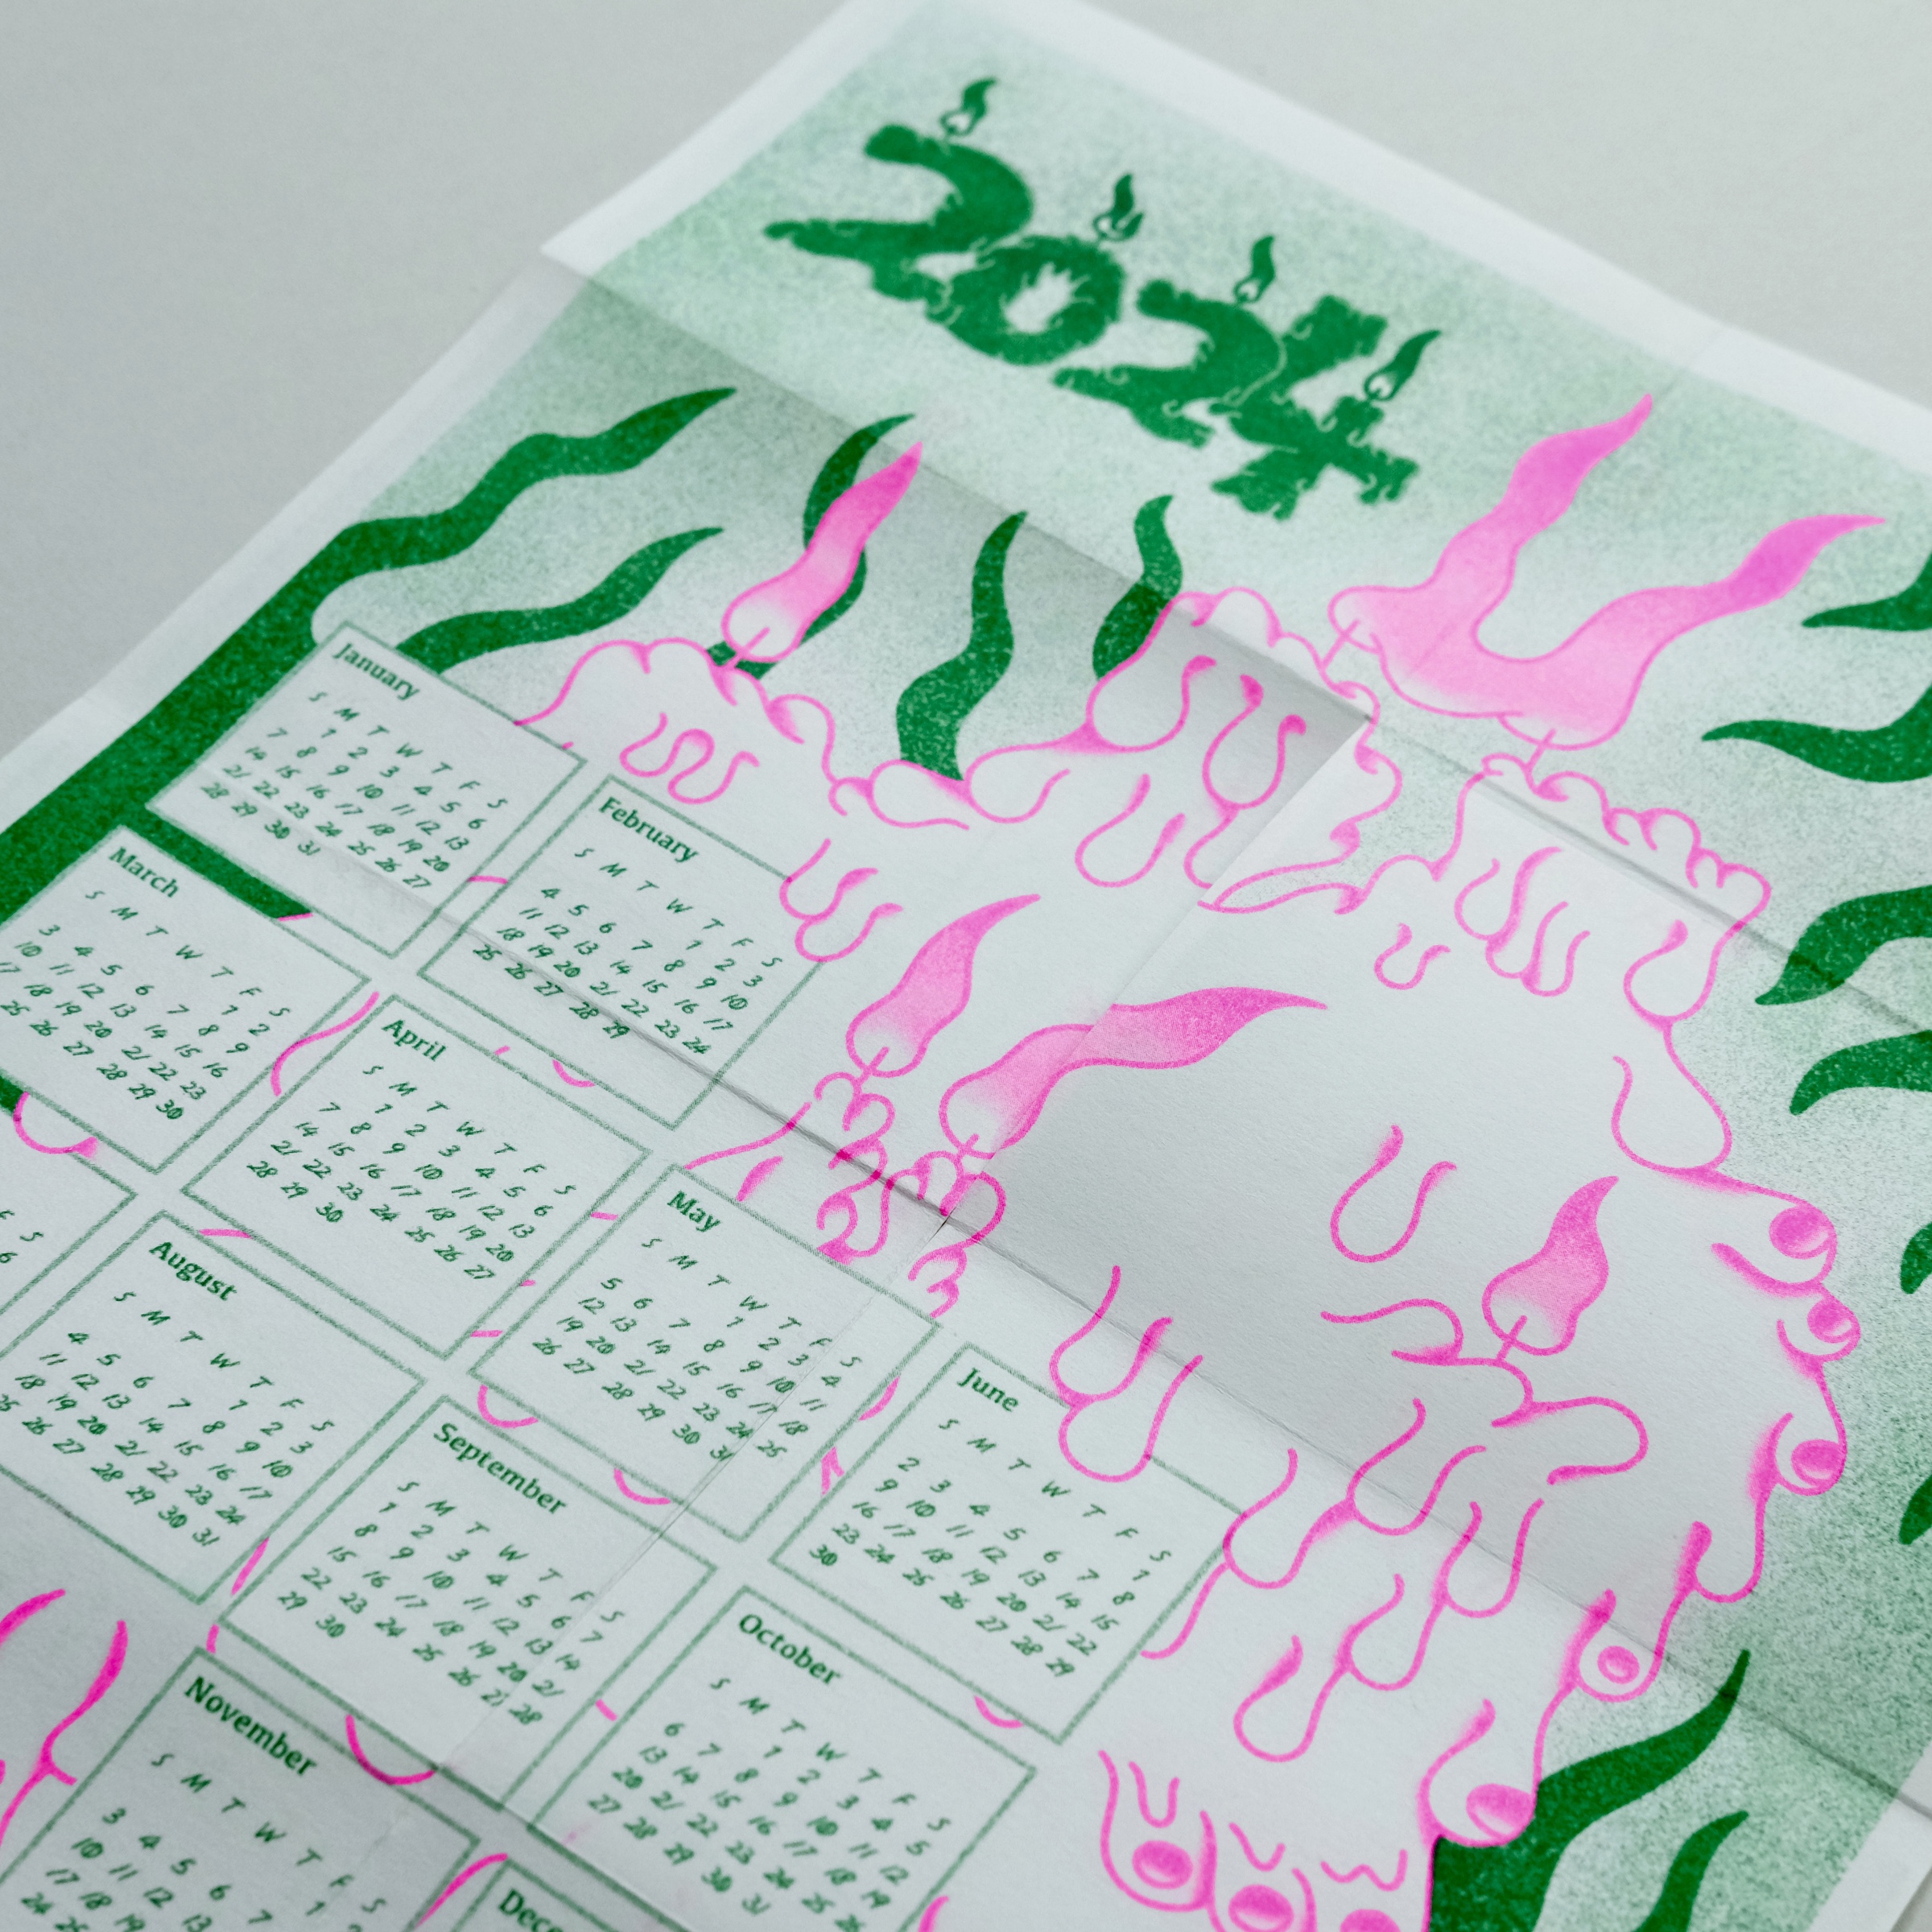 2024
January
S M T W T F S
1 2 3 4 5 6
7 8 9 10 11 12 13
14 15 16 17 18 19 20
21 22 23 24 25 26 27
28 29 30 31
February
S M T W T F S
1 2 3
4 5 6 7 8 9 10
11 12 13 14 15 16 17
18 19 20 21 22 23 24
25 26 27 28 29
March
S M T W T F S
1 2
3 4 5 6 7 8 9
10 11 12 13 14 15 16
17 18 19 20 21 22 23
25 26 27 28 29 30
April
S M T W T F S
1 2 3 4 5 6
7 8 9 10 11 12 13
14 15 16 17 18 19 20
21 22 23 24 25 26 27
28 29 30
May
S M T W T F S
1 2 3 4
5 6 7 8 9 10 11
12 13 14 15 16 17 18
19 20 21 22 23 24 25
26 27 28 29 30 31
June
S M T W T F S
1
2 3 4 5 6 7 8
9 10 11 12 13 14 15
16 17 18 19 20 21 22
23 24 25 26 27 28 29
30
S
6
August
S M T W T F S
1 2 3
4 5 6 7 8 9 10
11 12 13 14 15 16 17
18 19 20 21 22 23 24
25 26 27 28 29 30 31
September
S M T W T F S
1 2 3 4 5 6 7
8 9 10 11 12 13 14
15 16 17 18 19 20 21
22 23 24 25 26 27 28
29 30
October
S M T W T F S
1 2 3 4 5
6 7 8 9 10 11 12
13 14 15 16 17 18 19
20 21 22 23 24 25 26
27 28 29 30 31
November
S M T W T F S
1
3 4 5 6 7
10 11 12 13
17 18 19
24 25
Dece